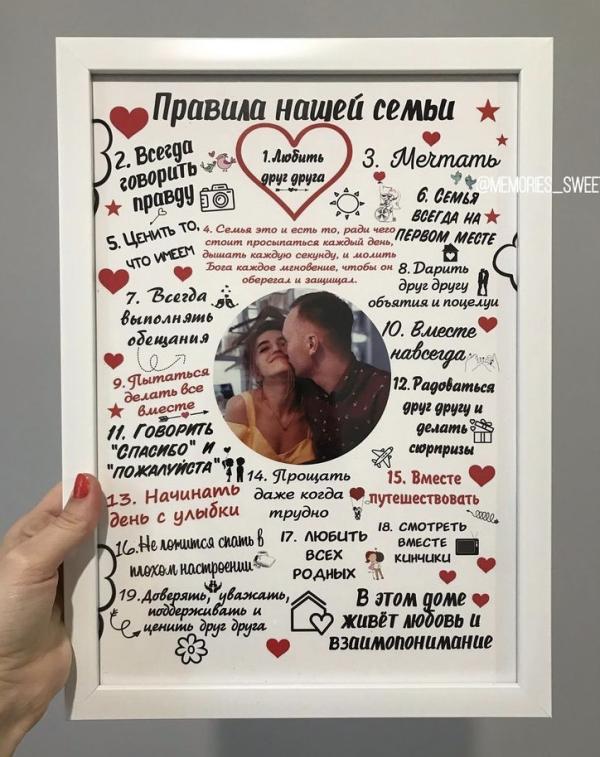 Правила нашей семьи
1. Любить
друг друга
2. Всегда
говорить
правду
3. Мечтать
@MEMORIES_SWEE
4. Семья это и есть то, ради чего
стоит просыпаться каждый день,
дышать каждую секунду, и молить
Бога каждое мгновение, чтобы он
оберегал и защищал.
5. ЦЕНИТЬ ТО,
ЧТО ИМЕЕМ
6. СЕМЬЯ
ВСЕГДА НА
ПЕРВОМ МЕСТЕ
7. Всегда
выполнять
обещания
8. Дарить
друг другу
объятия и поцелуи
9. Пытаться
делать все
вместе
10. Вместе
навсегда
11. ГОВОРИТЬ
"СПАСИБО" И
"ПОЖАЛУЙСТА"
12. Радоваться
друг другу и
делать
сюрпризы
13. Начинать
день с улыбки
14. Прощать
даже когда
трудно
15. Вместе
путешествовать
16. Не ложится спать в
плохом настроении
17. ЛЮБИТЬ
ВСЕХ
РОДНЫХ
18. СМОТРЕТЬ
ВМЕСТЕ
КИНЧИКИ
19. Доверять, уважать,
поддерживать и
ценить друг друга
В этом доме
живёт любовь и
взаимопонимание